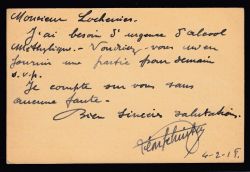 Monsieur Lochenies.
J'ai besoin d'urgence d'alcool
Méthylique. - Voudriez vous m'en
fournir une partie pour demain
s.v.p.
Je compte sur vous sans
aucune faute. -
Bien sincères salutations.
4-2-19.